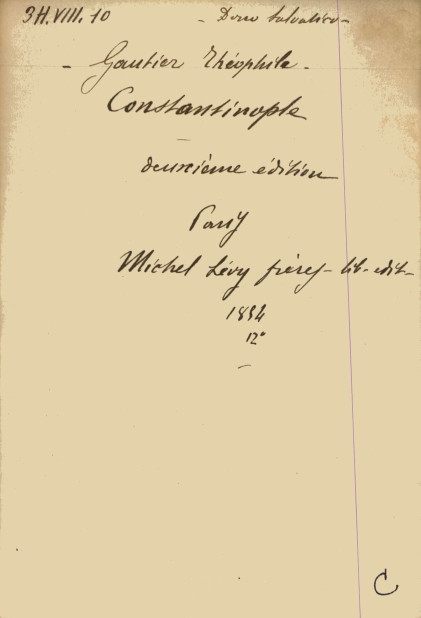 3H.VIII.10 - Dono Salvatico -
- Gautier Théophile -
Constantinople
deuxième édition
Paris
Michel Lévy frères - lib-edit-
1854
12°
C